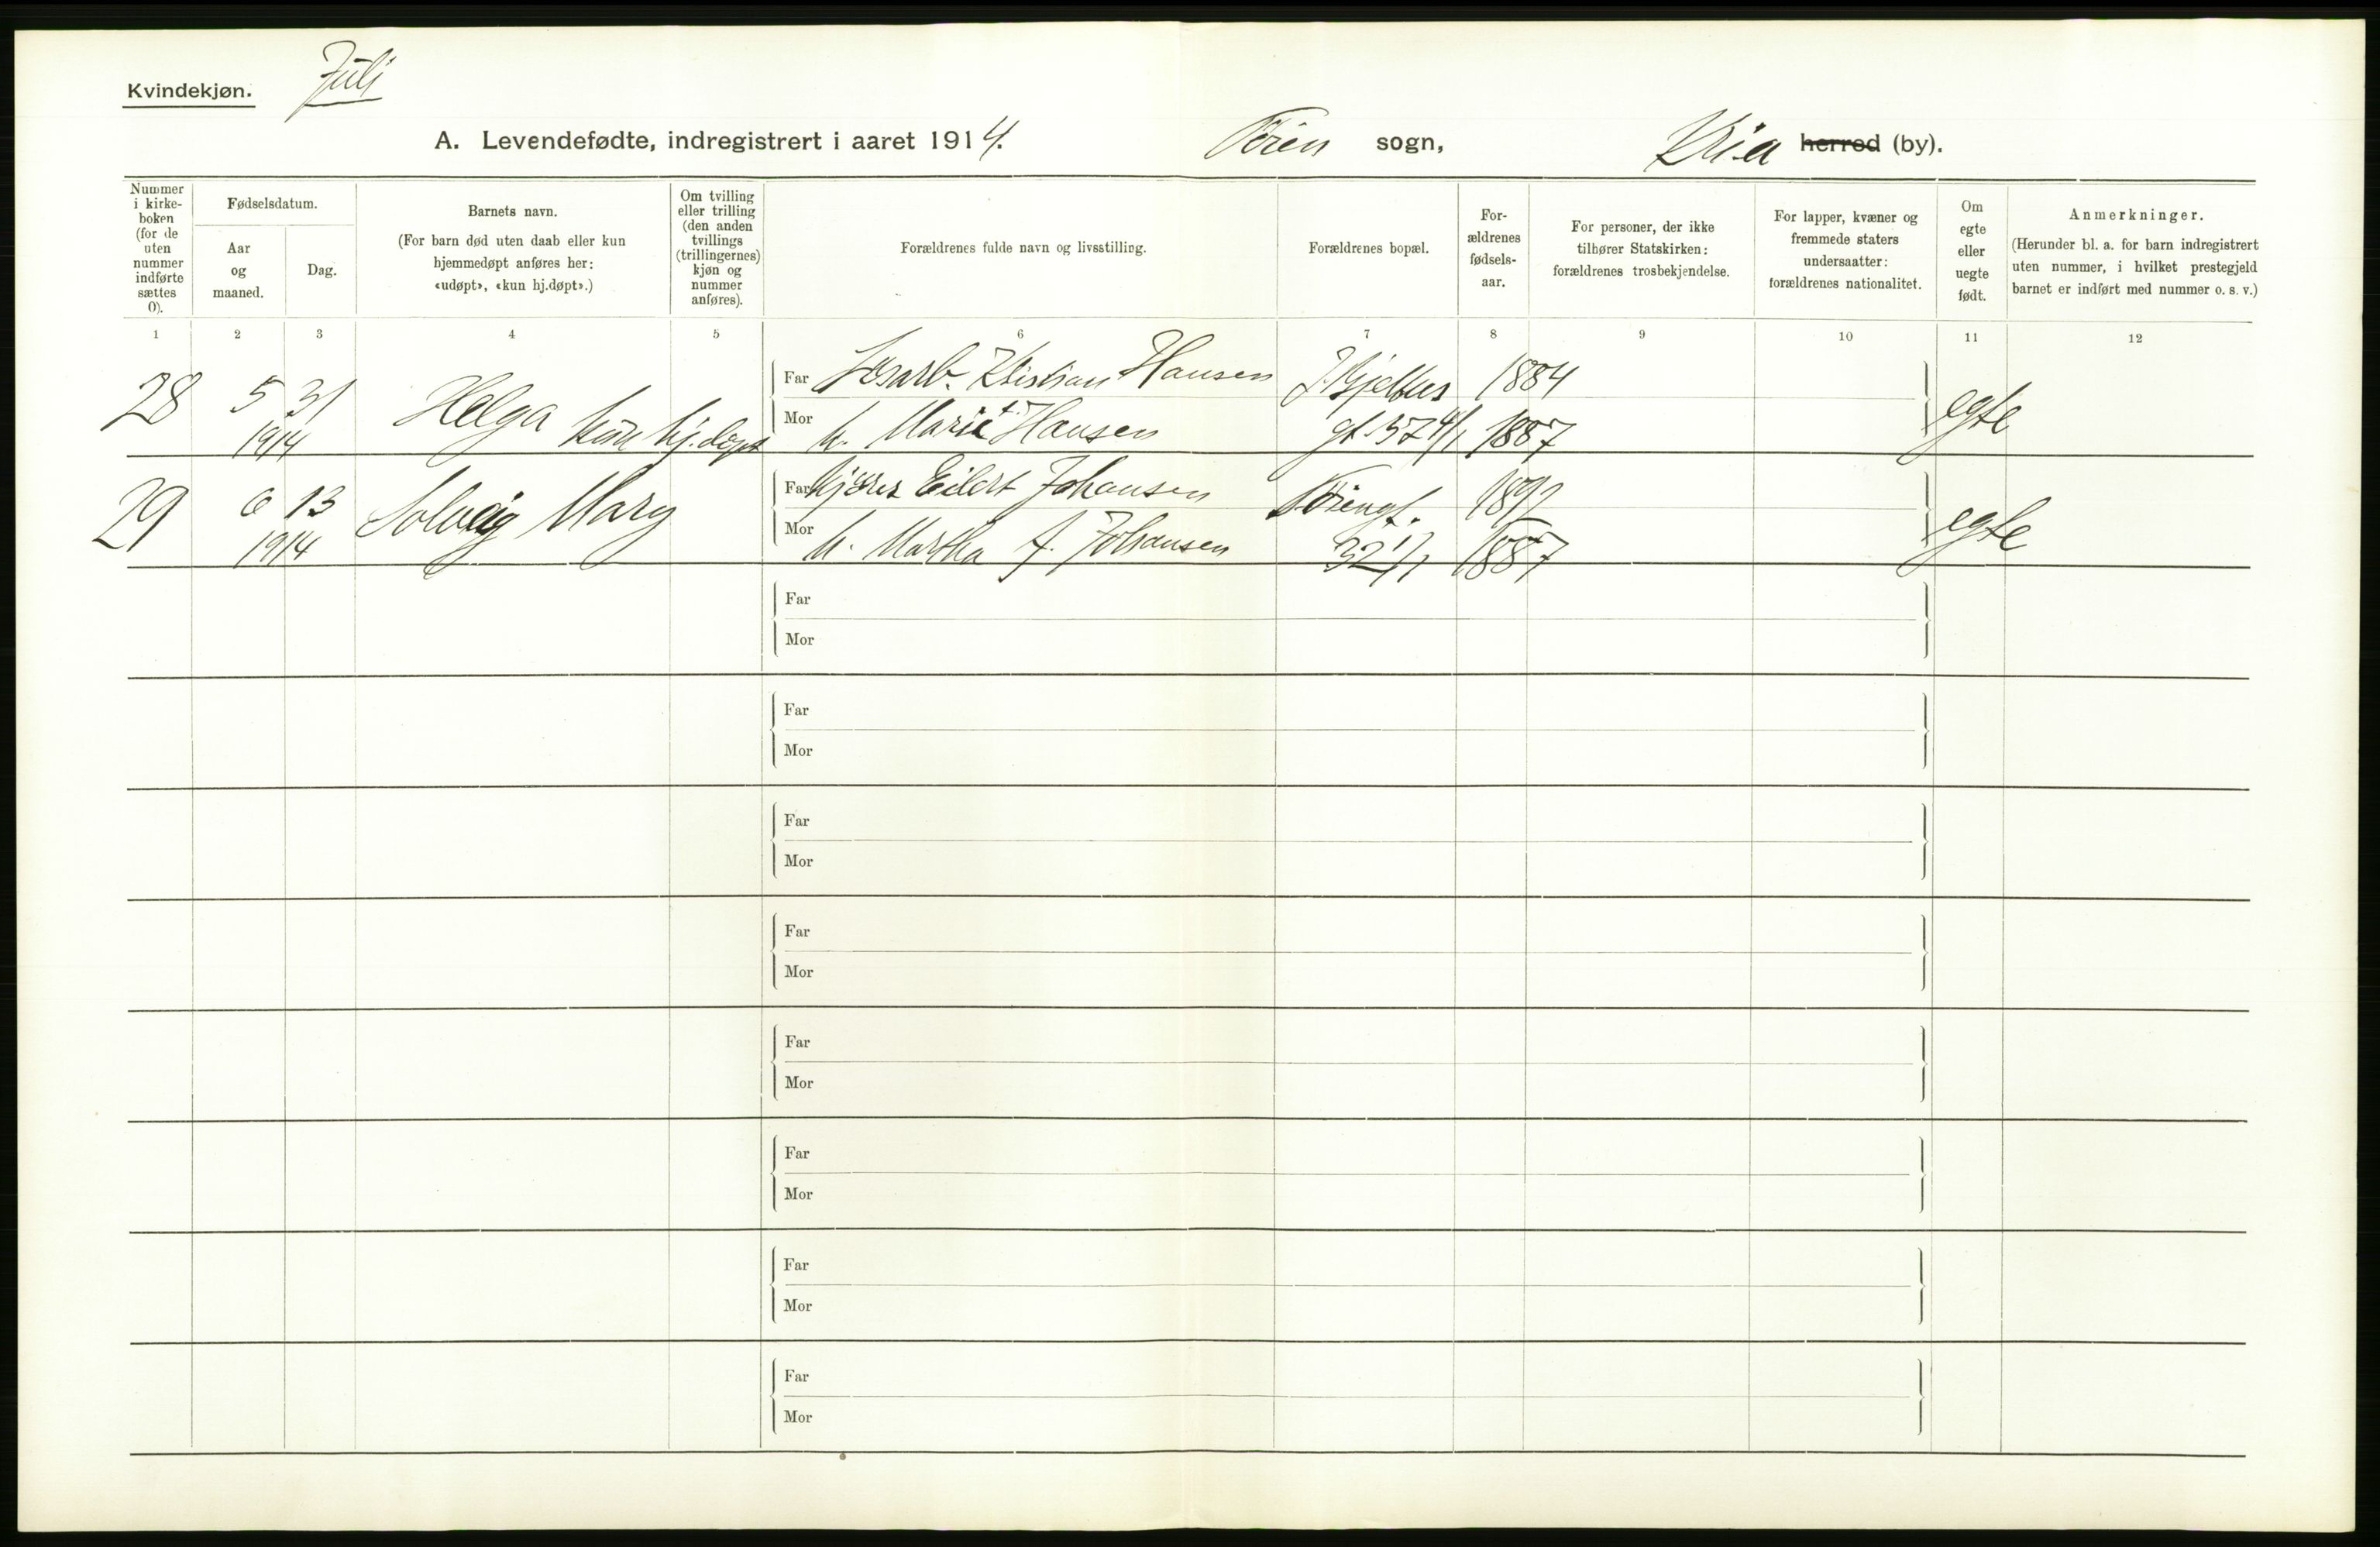 Kvindekjøn.
Juli
A. Levendefødte, indregistrert i aaret 1914.
Vøien sogn,
Kr.a herred (by).
Nummer i kirke-boken (for de uten nummer indførte sættes 0).
Fødselsdatum.
Aar og maaned.
Dag.
Barnets navn.
(For barn død uten daab eller kun hjemmedøpt anføres her: «udøpt», «kun hj.døpt».)
Om tvilling eller trilling (den anden tvillings (trillingernes) kjøn og nummer anføres).
Forældrenes fulde navn og livsstilling.
Forældrenes bopæl.
For-ældrenes fødsels-aar.
For personer, der ikke tilhører Statskirken: forældrenes trosbekjendelse.
For lapper, kvæner og fremmede staters undersaatter: forældrenes nationalitet.
Om egte eller uegte født.
Anmerkninger.
(Herunder bl. a. for barn indregistrert uten nummer, i hvilket prestegjeld barnet er indført med nummer o. s. v.)
1 2 3 4 5 6 7 8 9 10 11 12
28 5 31 1914 Helga kun hj.døpt
Far Løsarb. Kristian Hansen 1884
Mor h. Marie Hansen 1887
egte
29 6 13 1914 Solveig Mary
Far Eilert Johansen
Mor h. Martha J. Johansen 32 1/1 1887
egte
Far
Mor
Far
Mor
Far
Mor
Far
Mor
Far
Mor
Far
Mor
Far
Mor
Far
Mor